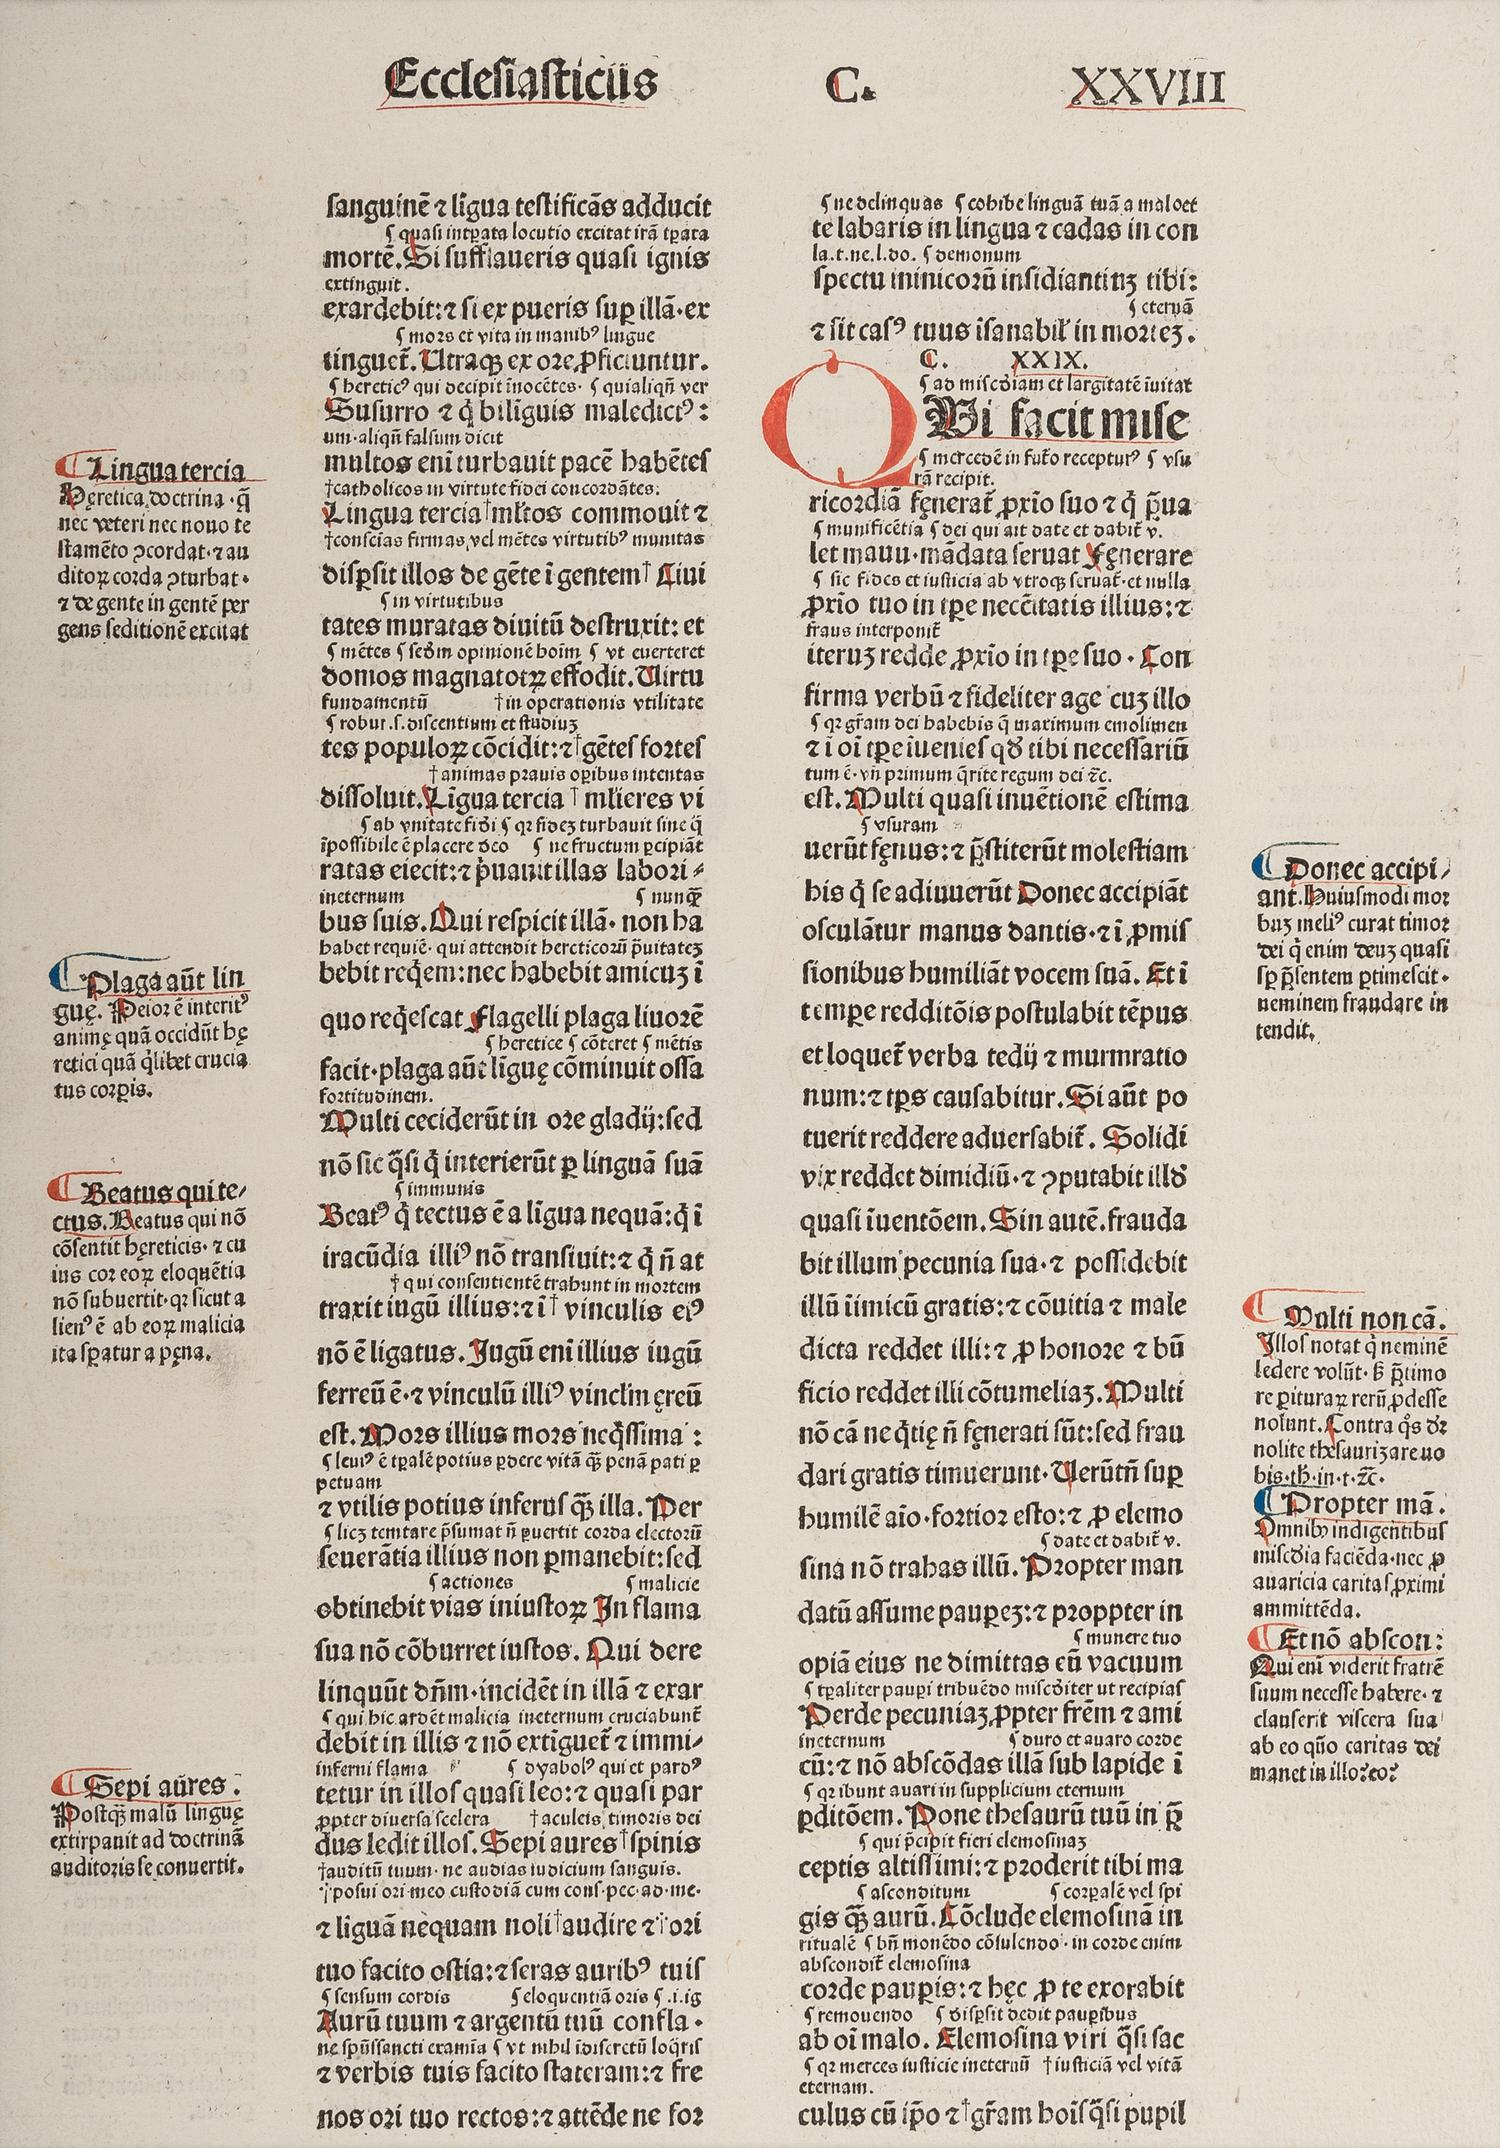 Ecclesiasticus C. XXVIII
¶ Lingua tercia
Hęretica doctrina·q̄
nec veteri nec nouo te
stamēto ꝯcordat·⁊ au
ditoꝝ corda ꝯturbat·
⁊ de gente in gentē per
gens seditionē excitat
¶ Plaga aūt lin
guę. Peior ē interitꝰ
animę quā occidūt hę
retici quā q̄libet crucia
tus corꝑis.
¶ Beatus qui te-
ctus. Beatus qui nō
cōsentit hęreticis·⁊ cu
ius cor eoꝝ eloquētia
nō subuertit·qꝛ sicut a
lienꝰ ē ab eoꝝ malicia
ita sꝑatur a pęna.
¶ Sepi aūres:
Postꝙ̄ malū linguę
extirpauit ad doctrinā
auditoris se conuertit.
sanguinē ⁊ līgua testificās adducit
¶ quasi intꝑata locutio excitat irā tꝑata
mortē. Si sufflaueris quasi ignis
extinguit.
exardebit:⁊ si ex pueris suꝑ illā·ex
¶ mors et vita in manibꝰ lingue
tinguet̄. Utraqꝫ ex ore ꝓficiuntur.
¶ hereticꝰ qui decipit īnocētes· ¶ quialiqn̄ ver
Susurro ⁊ q̇ bilīguis maledictꝰ:
um·aliqn̄ falsum dicit
multos enī turbauit pacē habētes
†catholicos in virtute fidei concordātes:
Lingua tercia†ml̄tos commouit ⁊
†conscīas firmas,vel mētes virtutibꝰ munitas
disꝑsit illos de gēte ī gentem† Ciui
¶ in virtutibus
tates muratas diuitū destruxit: et
¶ mētes ¶ scd̄m opinionē hoīm ¶ vt euerteret
domos magnatotꝝ effodit. Uirtu
fundamentū †in operationis vtilitate
¶ robur.s.discentium et studiuꝫ
tes populoꝝ cōcidit:⁊†gētes fortes
†animas prauis oꝑibus intentas
dissoluit. Līgua tercia † ml̄ieres vi
¶ ab vnitate fidi ¶ qꝛ fideꝫ turbauit sine q̄
īpossibile ē placere deo ¶ ne fructum ꝑcipiāt
ratas eiecit:⁊ p̄uauit illas labori-
ineternum ¶ nunꝙ̄
bus suis. Qui respicit illā· non ha
habet requiē· qui attendit hereticorū p̄uitateꝫ
bebit req̇em:nec habebit amicuꝫ ī
quo req̇escat Flagelli plaga liuorē
¶ heretice ¶ cōteret ¶ mētis
facit·plaga aūt līguę cōminuit ossa
fortitudinem.
Multi ceciderūt in ore gladij:sed
nō sic q̄si q̇ interierūt ꝑ linguā suā
¶ immunis
Beatꝰ q̇ tectus ē a līgua nequā:q̇ ī
iracūdia illiꝰ nō transiuit:⁊ q̇ n̄ at
† qui consentientē trahunt in mortem
traxit iugū illius:⁊ ī† vinculis eiꝰ
nō ē ligatus. Jugū enī illius iugū
ferreū ē·⁊ vinculū illiꝰ vinclm̄ ęreū
est. Mors illius mors neq̇ssima:
¶ leuiꝰ ē tꝑalē potius ꝑdere vitā ꝙ̄ penā pati ꝑ
petuam
⁊ vtilis potius inferus ꝙ̄ illa. Per
¶ licꝫ temtare p̄sumat n̄ ꝑuertit corda electorū
seuerātia illius non ꝑmanebit:sed
¶ actiones ¶ malicie
obtinebit vias iniustoꝝ In flama
sua nō cōburret iustos. Qui dere
linquūt dn̄m·incidēt in illā ⁊ exar
¶ qui hic ardēt malicia ineternum cruciabunt̄
debit in illis ⁊ nō extīguet̄ ⁊ immi-
inferni flama ¶ dyabolꝰ qui et pardꝰ
tetur in illos quasi leo:⁊ quasi par
ꝓpter diuersa scelera †aculeis, timoris dei
dus ledit illos. Sepi aures†spinis
†auditū tuum· ne audias iudicium sanguis.
†posui ori meo custodiā cum cons·pec·ad·me·
⁊ līguā nequam noli†audire ⁊†ori
tuo facito ostia:⁊ seras auribꝰ tuis
¶ sensum cordis ¶ eloquentiā oris ¶ .i.ig
Aurū tuum ⁊ argentū tuū confla·
ne spūssancti examīa ¶ vt nihil īdiscretū loq̇ris
⁊ verbis tuis facito stateram:⁊ fre
nos ori tuo rectos:⁊ attēde ne for
¶ ne delinquas ¶ cohibe linguā tuā a malo et
te labaris in lingua ⁊ cadas in con
la.t.ne.l.do. ¶ demonum
spectu inimicorū insidiantiuꝫ tibi:
¶ eternā
⁊ sit casꝰ tuus īsanabil̄ in morteꝫ.
C. XXIX.
¶ ad misc̄diam et largitatē īuitat
QUi facit mise
¶ mercedē in fut̄o recepturꝰ ¶ vsu
rā recipit.
ricordiā fęnerat̄ ꝓxīo suo ⁊ q̇ p̄ua
¶ munificētia ¶ dei qui ait date et dabit̄ v.
let manu·mādata seruat Fęnerare
¶ sic fides et iusticia ab vtroqꝫ seruat̄·et nulla
ꝓxīo tuo in tꝑe necc̄itatis illius:⁊
fraus interponit̄
iteruꝫ redde ꝓxīo in tꝑe suo· Con
firma verbū ⁊ fideliter age cuꝫ illo
¶ qꝛ gr̄am dei habebis q̄ maximum emolimen
⁊ ī oī tꝑe īuenies qd̄ tibi necessariū
tum ē·vn̄ primum q̄rite regum dei ⁊c̄.
est. Multi quasi inuētionē estima
¶ vsuram
uerūt fęnus:⁊ p̄stiterūt molestiam
his q̇ se adiuuerūt Donec accipiāt
osculātur manus dantis·⁊ ī ꝓmis
sionibus humiliāt vocem suā. Et ī
tempe redditōis postulabit tēpus
et loquet̄ verba tedij ⁊ murmratio
num:⁊ tꝑs causabitur. Si aūt po
tuerit reddere aduersabit̄. Solidi
vix reddet dimidiū·⁊ ꝯputabit illd̄
quasi īuentōem. Sin autē.frauda
bit illum pecunia sua·⁊ possidebit
illū īimicū gratis:⁊ cōuitia ⁊ male
dicta reddet illi:⁊ ꝓ honore ⁊ bn̄
ficio reddet illi cōtumeliaꝫ. Multi
nō cā neq̇tię n̄ fęnerati sūt:sed frau
dari gratis timuerunt. Uerūtn̄ suꝑ
humilē aīo·fortior esto:⁊ ꝓ elemo
¶ date et dabit̄ v.
sina nō trahas illū. Propter man
datū assume pauꝑeꝫ:⁊ proppter in
¶ munere tuo
opiā eius ne dimittas eū vacuum
¶ tꝑaliter pauꝑi tribuēdo misc̄diter ut recipias
Perde pecuniaꝫ ꝓpter fr̄em ⁊ ami
ineternum ¶ duro et auaro corde
cū:⁊ nō abscōdas illā sub lapide ī
¶ qꝛ ibunt auari in supplicium eternum
ꝑditōem. Pone thesaurū tuū in p̄
¶ qui p̄cipit fieri elemosinaꝫ
ceptis altissimi:⁊ proderit tibi ma
¶ asconditum ¶ corꝑalē vel spi
gis ꝙ̄ aurū. Cōclude elemosinā in
ritualē ¶ bn̄ monēdo cōsulendo· in corde enim
abscondit̄ elemosina
corde pauꝑis:⁊ hęc ꝓ te exorabit
¶ remouendo ¶ disꝑsit dedit pauꝑibus
ab oī malo. Elemosina viri q̄si sac
¶ qꝛ merces iusticie ineternū †iusticiā vel vitā
eternam.
culus cū ip̄o ⁊†gr̄am hoīs q̄si pupil
¶ Donec accipi-
ant. Huiusmodi mor
buꝫ meliꝰ curat timor
dei q̇ enim deuꝫ quasi
sꝑ p̄sentem ꝑtimescit·
neminem fraudare in
tendit.
¶ Multi non cā.
Illos notat q̇ neminē
ledere volūt· sꝫ p̄timo
re ꝑituraꝝ rerū ꝓdesse
nolunt. Contra q̇s dr̄
nolite thesaurizare uo
bis·th̄·in·t·⁊c̄·
¶ Propter mā.
Omnibꝫ indigentibus
misc̄dia faciēda·nec ꝓ
auaricia caritas ꝓximi
ammittēda.
¶ Et nō abscon:
Qui enī viderit fratrē
suum necesse habere·⁊
clauserit viscera sua
ab eo qūo caritas dei
manet in illo:eo: